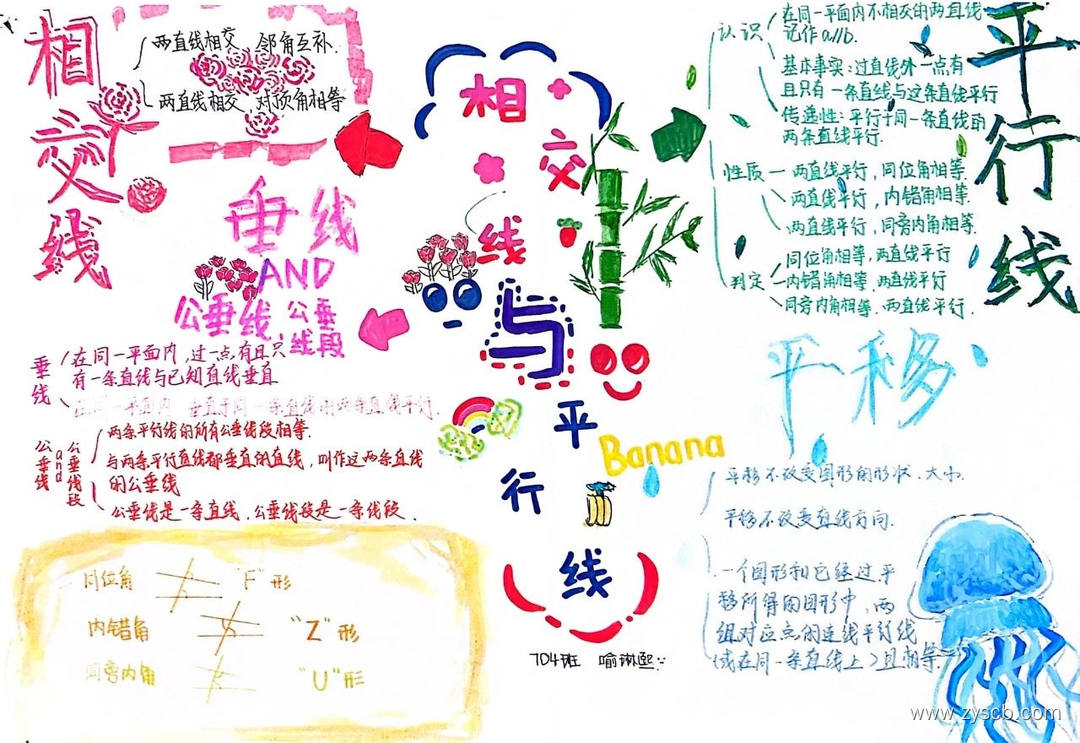 相交线
两直线相交，邻角互补.
两直线相交，对顶角相等
垂线
AND
公垂线、公垂
线段
垂线
在同一平面内，过一点有且只
有一条直线与已知直线垂直
在同一平面内，垂直于同一条直线的两条直线平行.
公垂线and公垂线段
两条平行线的所有公垂线段相等.
与两条平行直线都垂直的直线，叫作这两条直线
的公垂线
公垂线是一条直线，公垂线段是一条线段.
同位角 "F"形
内错角 "Z"形
同旁内角 "U"形
相交线与平行线
Banana
704班 喻琳熙
平行线
认识
在同一平面内不相交的两直线
记作a//b.
基本事实：过直线外一点有
且只有一条直线与这条直线平行
传递性：平行于同一条直线的
两条直线平行.
性质
两直线平行，同位角相等.
两直线平行，内错角相等.
两直线平行，同旁内角相等.
判定
同位角相等，两直线平行
内错角相等，两直线平行
同旁内角相等.两直线平行.
平移
平移不改变图形的形状、大小.
平移不改变直线方向.
一个图形和它经过平
移所得的图形中，两
组对应点的连线平行线
(或在同一条直线上)且相等.
www.zyscb.com